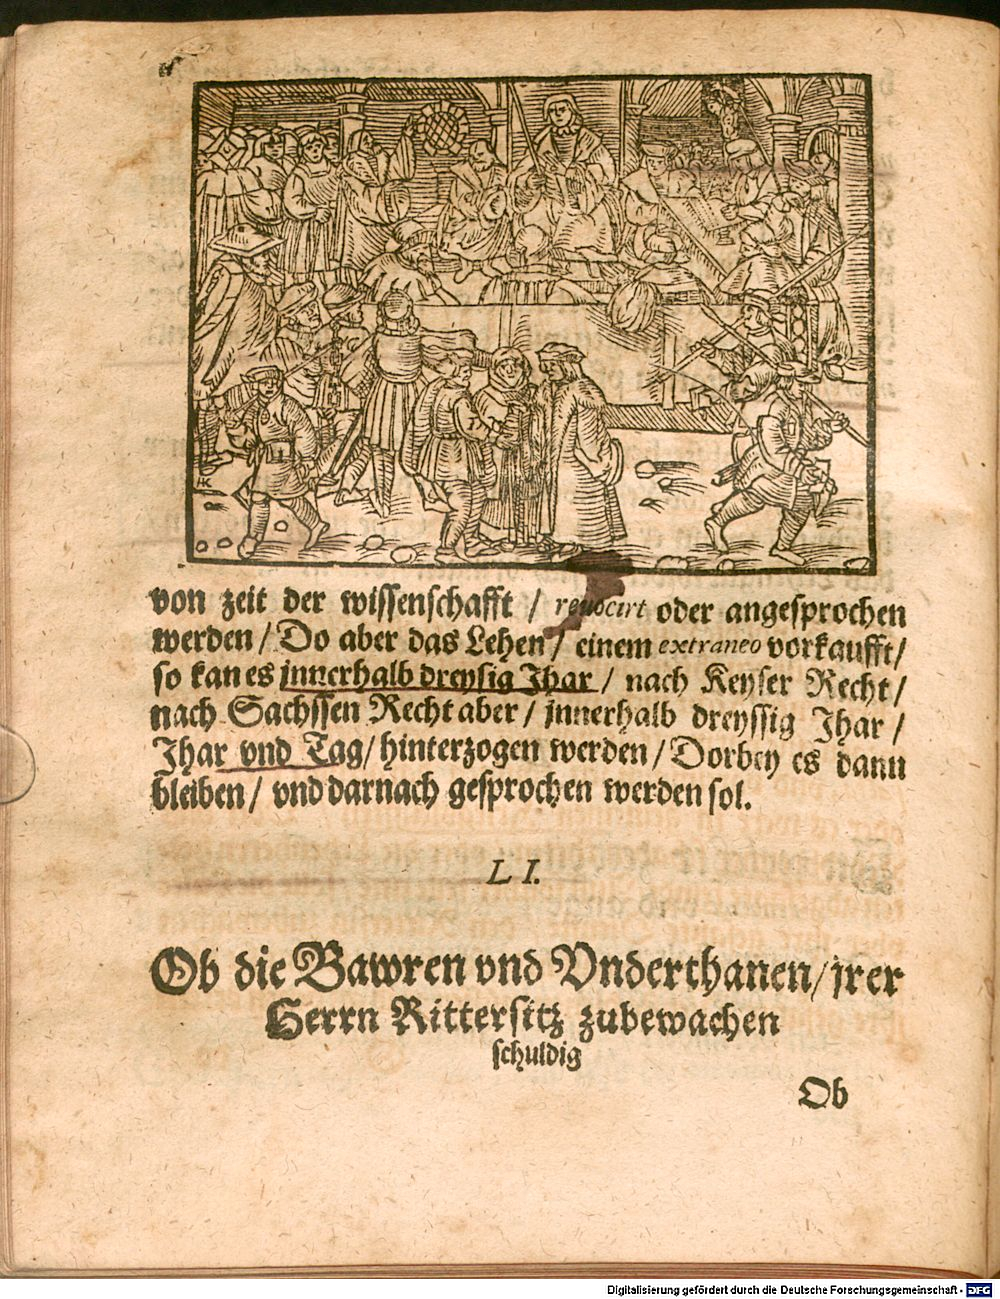 von zeit der wissenschafft / revocirt oder angesprochen
werden / Do aber das Lehen / einem extraneo vorkaufft /
so kan es innerhalb dreysig Jhar / nach Keyser Recht /
nach Sachssen Recht aber / innerhalb dreyssig Jhar /
Jhar vnd Tag / hinterzogen werden / Dorbey es dann
bleiben / vnd darnach gesprochen werden sol.
L I.
Ob die Bawren vnd Vnderthanen / jrer
Herrn Rittersitz zubewachen
schuldig
Ob
Digitalisierung gefördert durch die Deutsche Forschungsgemeinschaft - DFG